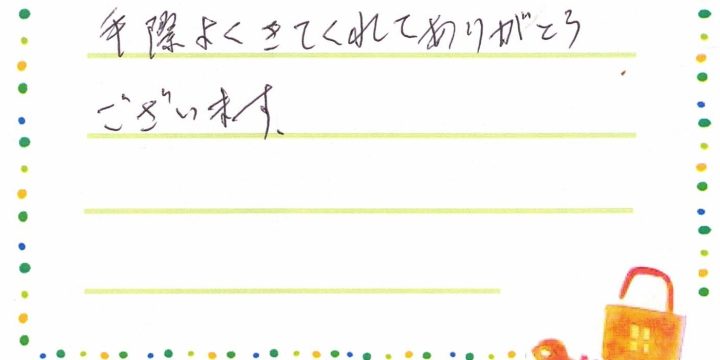 手際よくきてくれてありがとう
ございます。